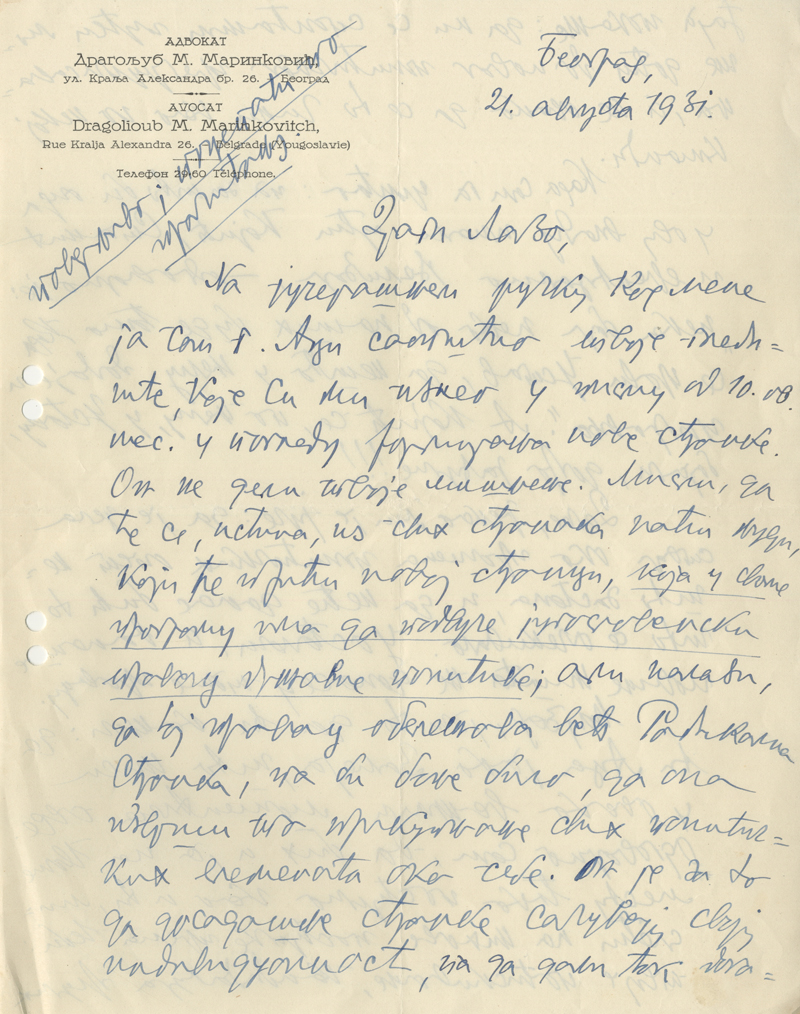 АДВОКАТ
Драгољуб М. Маринковић,
ул. Краља Александра бр. 26. Београд
AVOCAT
Dragolioub M. Marinkovitch,
Rue Kralja Alexandra 26. Belgrade (Yougoslavie)
Телефон 29-60 Téléphone.
поверљиво и
Београд,
21. августа 1931.
Драги Лазо,
На јучерашњем ручку код мене
ја сам г. Аци саопштио твоје гледи-
ште, које си ми изнео у писму од 10. ов.
мес. у погледу формирања нове странке.
Он не дели твоје мишљење. Мисли, да
ће се, истина, из свих странака наћи људи,
који ће прићи новој странци, која у свом
програму има да подвуче југословенски
правац државне политике; али налази,
да тај правац обележава већ Радикална
Странка, па би боље било, да она
изврши то прикупљање свих политич-
ких елемената око себе. Он је за то
да досадашње странке сачувају своју
индивидуалност, па да дали так